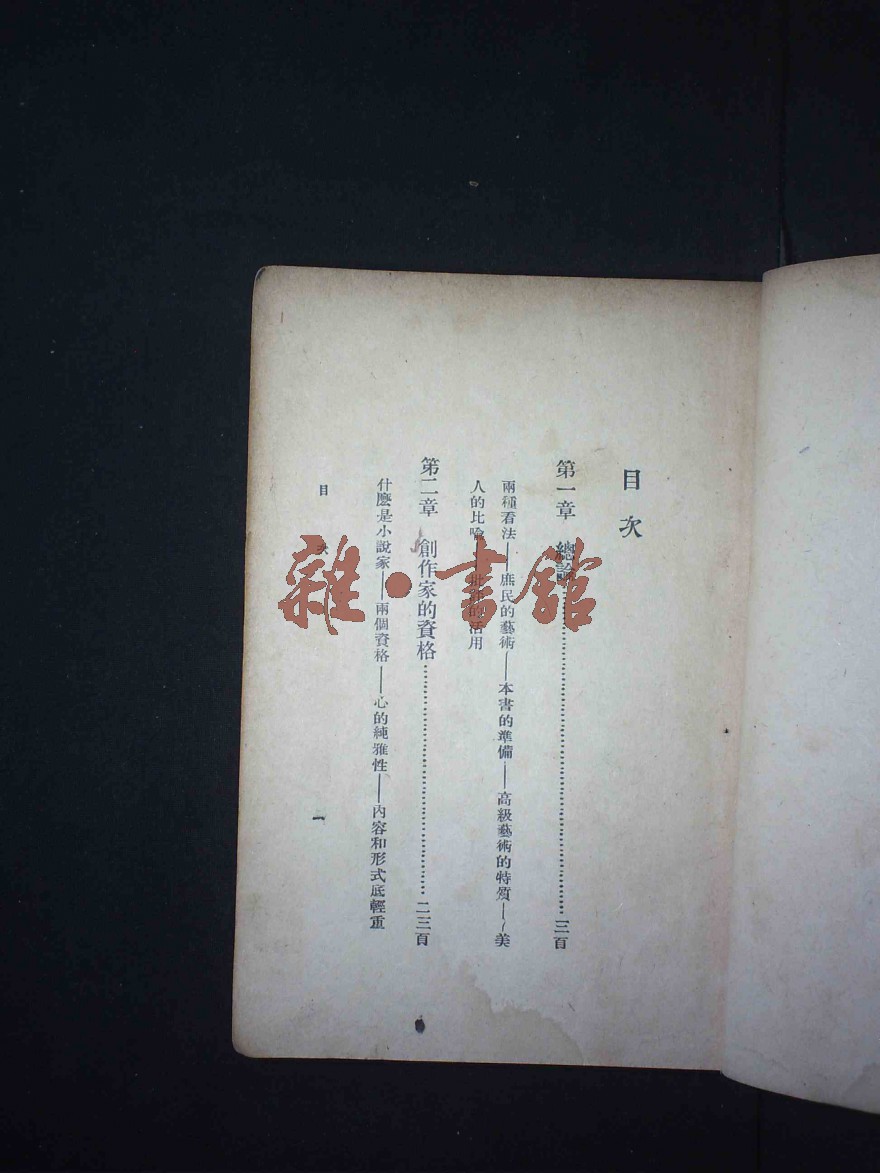 目次
第一章 總論……三百
兩種看法——庶民的藝術——本書的準備——高級藝術的特質——美
人的比喻 的活用
第二章 創作家的資格……二三百
什麼是小說家——兩個資格——心的純雅性——內容和形式底輕重
目 次
一
雜·書館